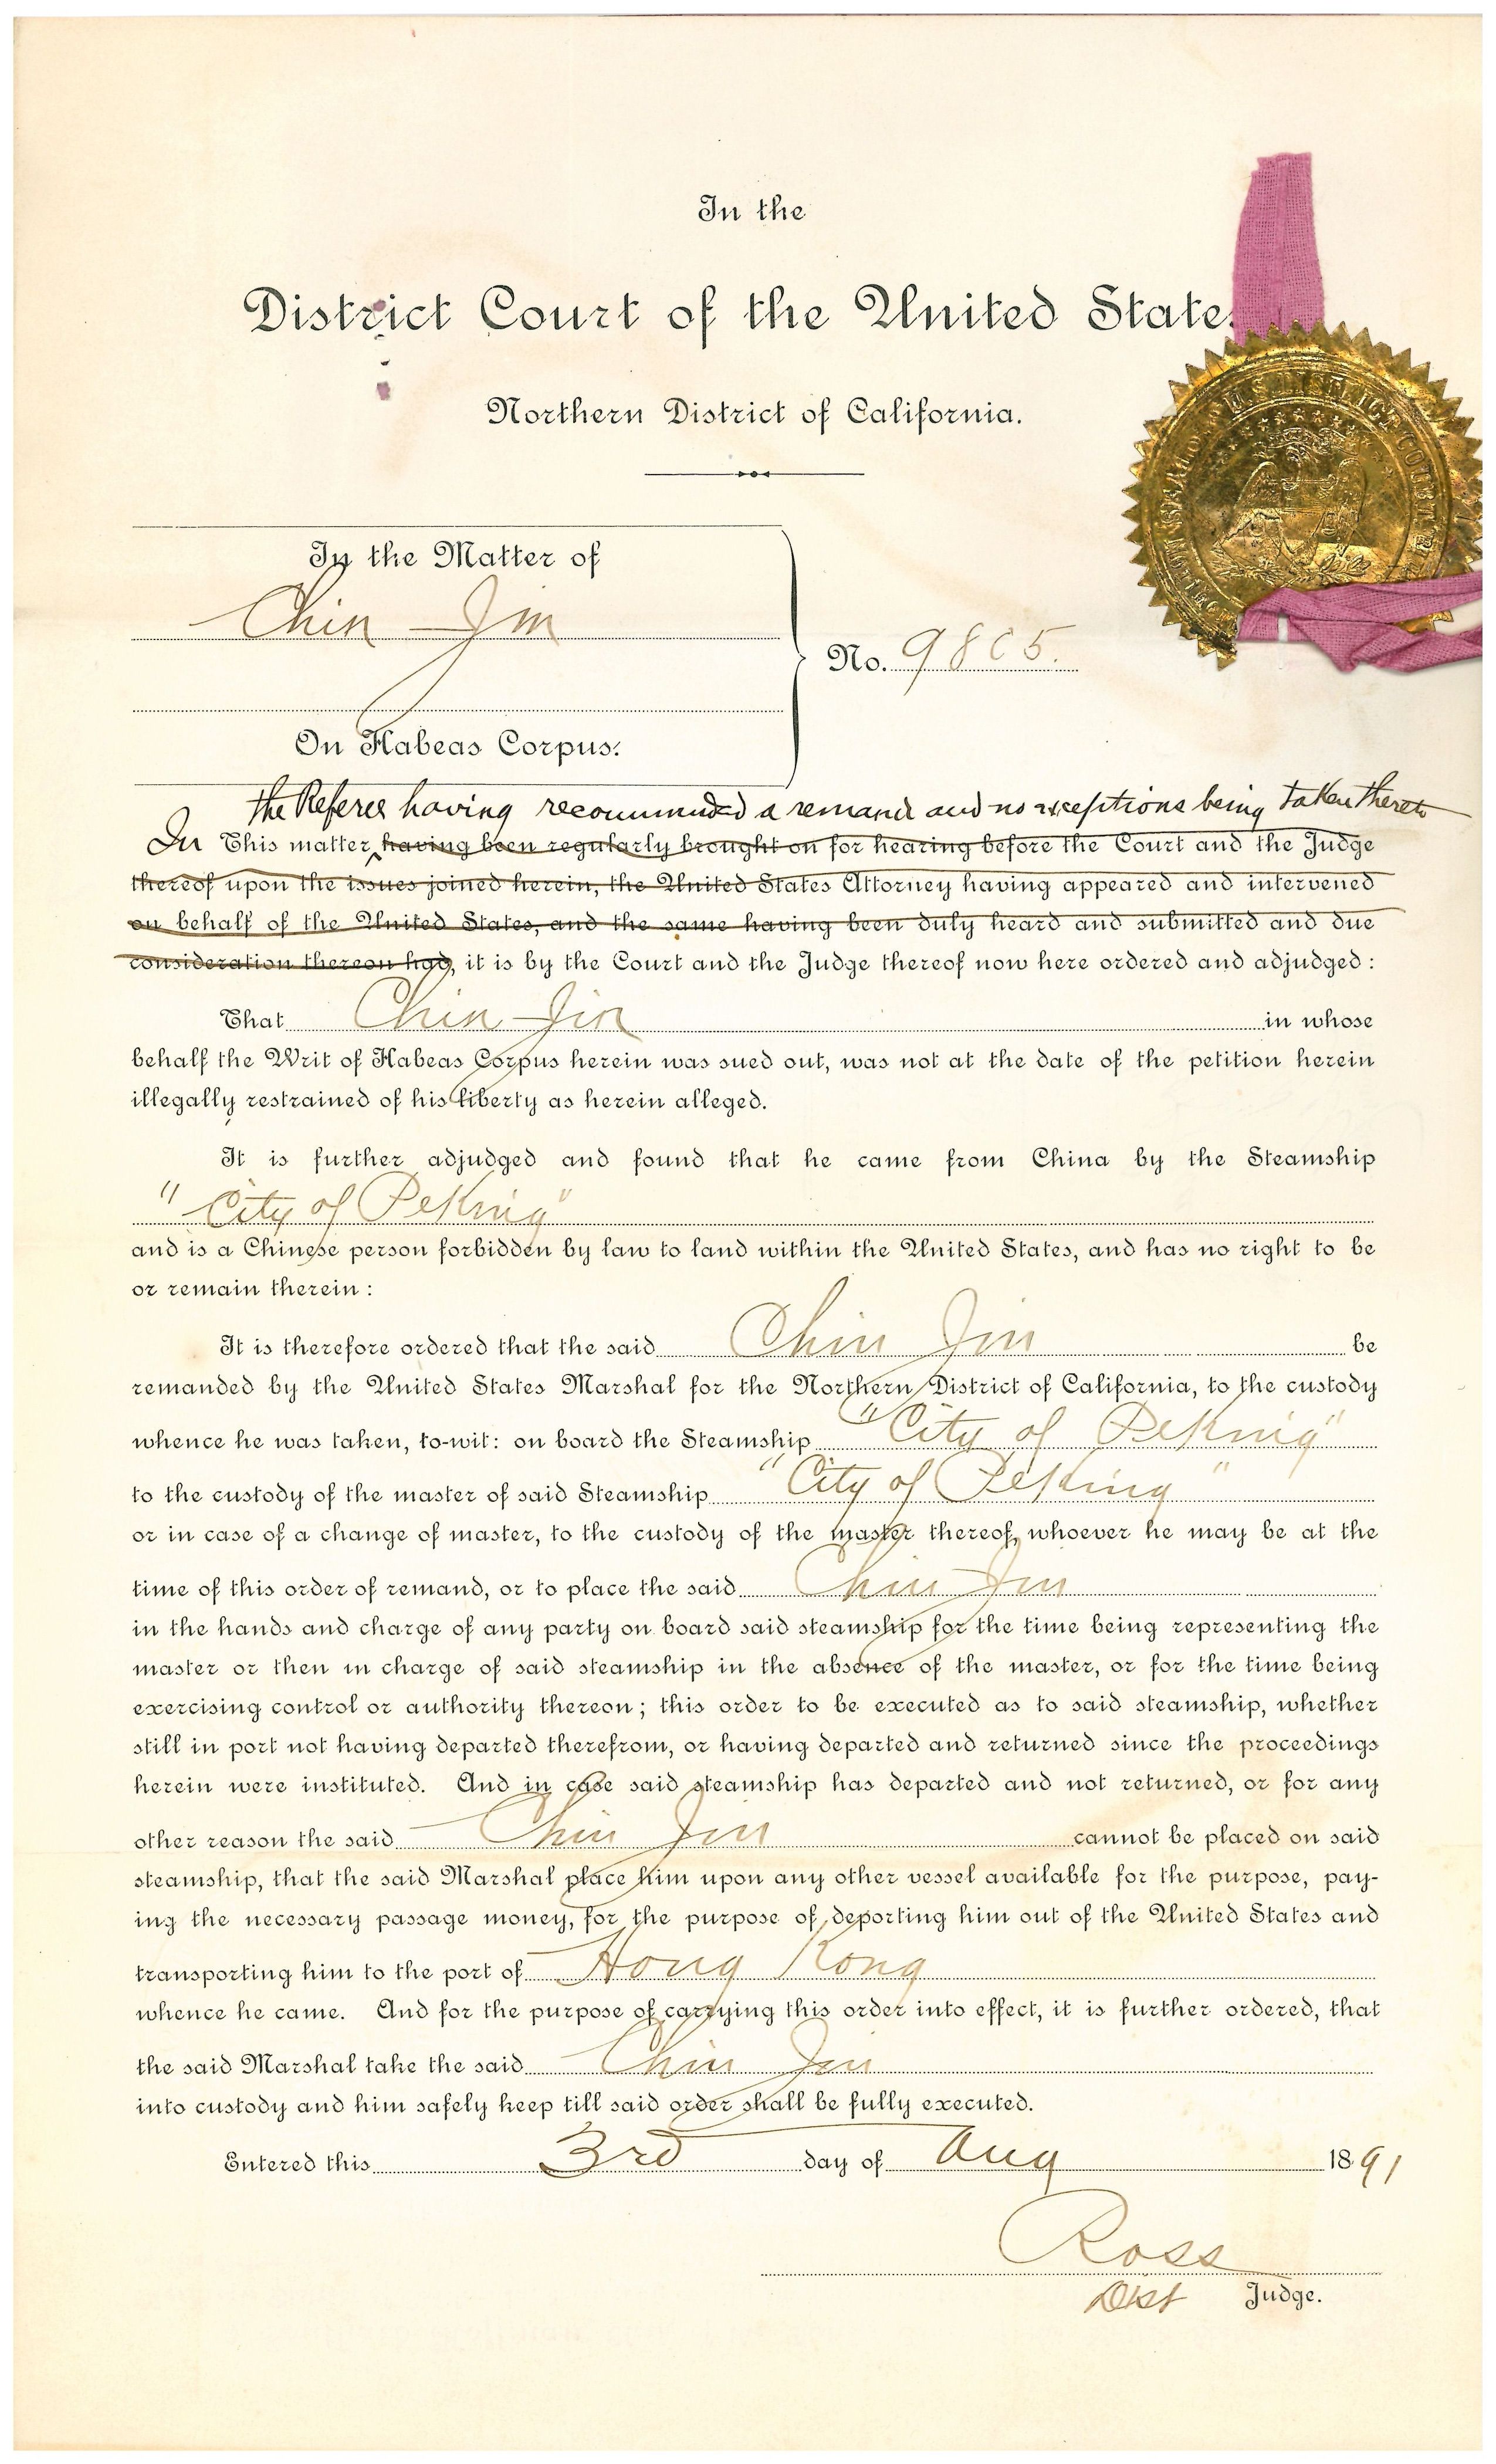 In the
District Court of the United States
Northern District of California.
In the Matter of
Chin Jin
No. 9805.
On Habeas Corpus.
the Referee having recommended a remand and no exceptions being taken thereto
In This matter, having been regularly brought on for hearing before the Court and the Judge
thereof upon the issues joined herein, the United States Attorney having appeared and intervened
on behalf of the United States, and the same having been duly heard and submitted and due
consideration thereon had, it is by the Court and the Judge thereof now here ordered and adjudged:
That Chin Jin in whose
behalf the Writ of Habeas Corpus herein was sued out, was not at the date of the petition herein
illegally restrained of his liberty as herein alleged.
It is further adjudged and found that he came from China by the Steamship
"City of Peking"
and is a Chinese person forbidden by law to land within the United States, and has no right to be
or remain therein:
It is therefore ordered that the said Chin Jin be
remanded by the United States Marshal for the Northern District of California, to the custody
whence he was taken, to-wit: on board the Steamship "City of Peking"
to the custody of the master of said Steamship "City of Peking"
or in case of a change of master, to the custody of the master thereof, whoever he may be at the
time of this order of remand, or to place the said Chin Jin
in the hands and charge of any party on board said steamship for the time being representing the
master or then in charge of said steamship in the absence of the master, or for the time being
exercising control or authority thereon; this order to be executed as to said steamship, whether
still in port not having departed therefrom, or having departed and returned since the proceedings
herein were instituted. And in case said steamship has departed and not returned, or for any
other reason the said Chin Jin cannot be placed on said
steamship, that the said Marshal place him upon any other vessel available for the purpose, pay-
ing the necessary passage money, for the purpose of deporting him out of the United States and
transporting him to the port of Hong Kong
whence he came. And for the purpose of carrying this order into effect, it is further ordered, that
the said Marshal take the said Chin Jin
into custody and him safely keep till said order shall be fully executed.
Entered this 3rd day of Aug 1891
Ross
Dist Judge.